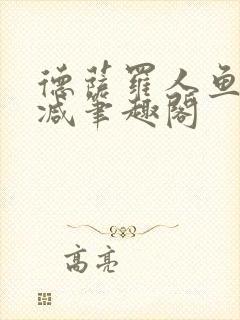 德萨罗人鱼
减笔趣阁
高亮